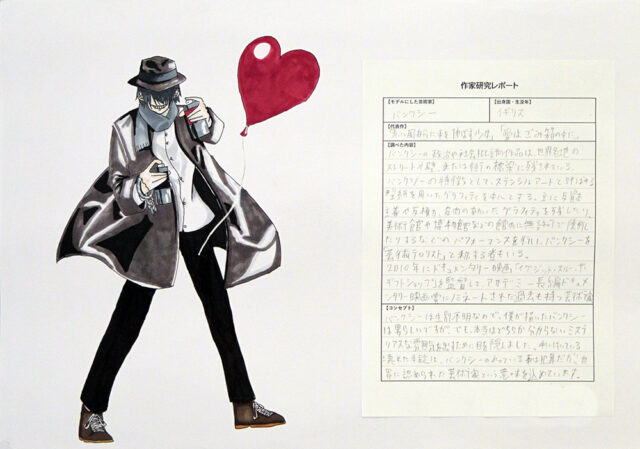 作家研究レポート
【モデルにした芸術家】
バンクシー
【出身国・生没年】
イギリス
【代表作】
「赤い風船に手を伸ばす少女」「愛はごみ箱の中に」
【調べた内容】
バンクシーの政治や社会批評の作品は、世界各地の
ストリートや壁、または街の橋梁に残されている。
バンクシーの特徴として、ステンシルアートと呼ばれる
型紙を用いたグラフィティを中心とする。主に
美術館や博物館などの館内に無許可で
たりするなどのパフォーマンスを行い、バンクシーを
「芸術テロリスト」と称する者もいる。
2010年にドキュメンタリー映画「イグジット・スルー・ザ・
ギフトショップ」を監督して、アカデミー長編ドキュメ
ンタリー映画賞にノミネートされた過去も持つ芸術家
【コンセプト】
バンクシーは性別不明なので、僕が描いたバンクシー
は男らしいですが、でも、本当はどちらか分からないミステ
リアスな雰囲気を出すために目を隠しました。手に付いている
壊れた手錠は、バンクシーのやっている事は犯罪だが、世
界に認められた芸術家という意味を込めています。